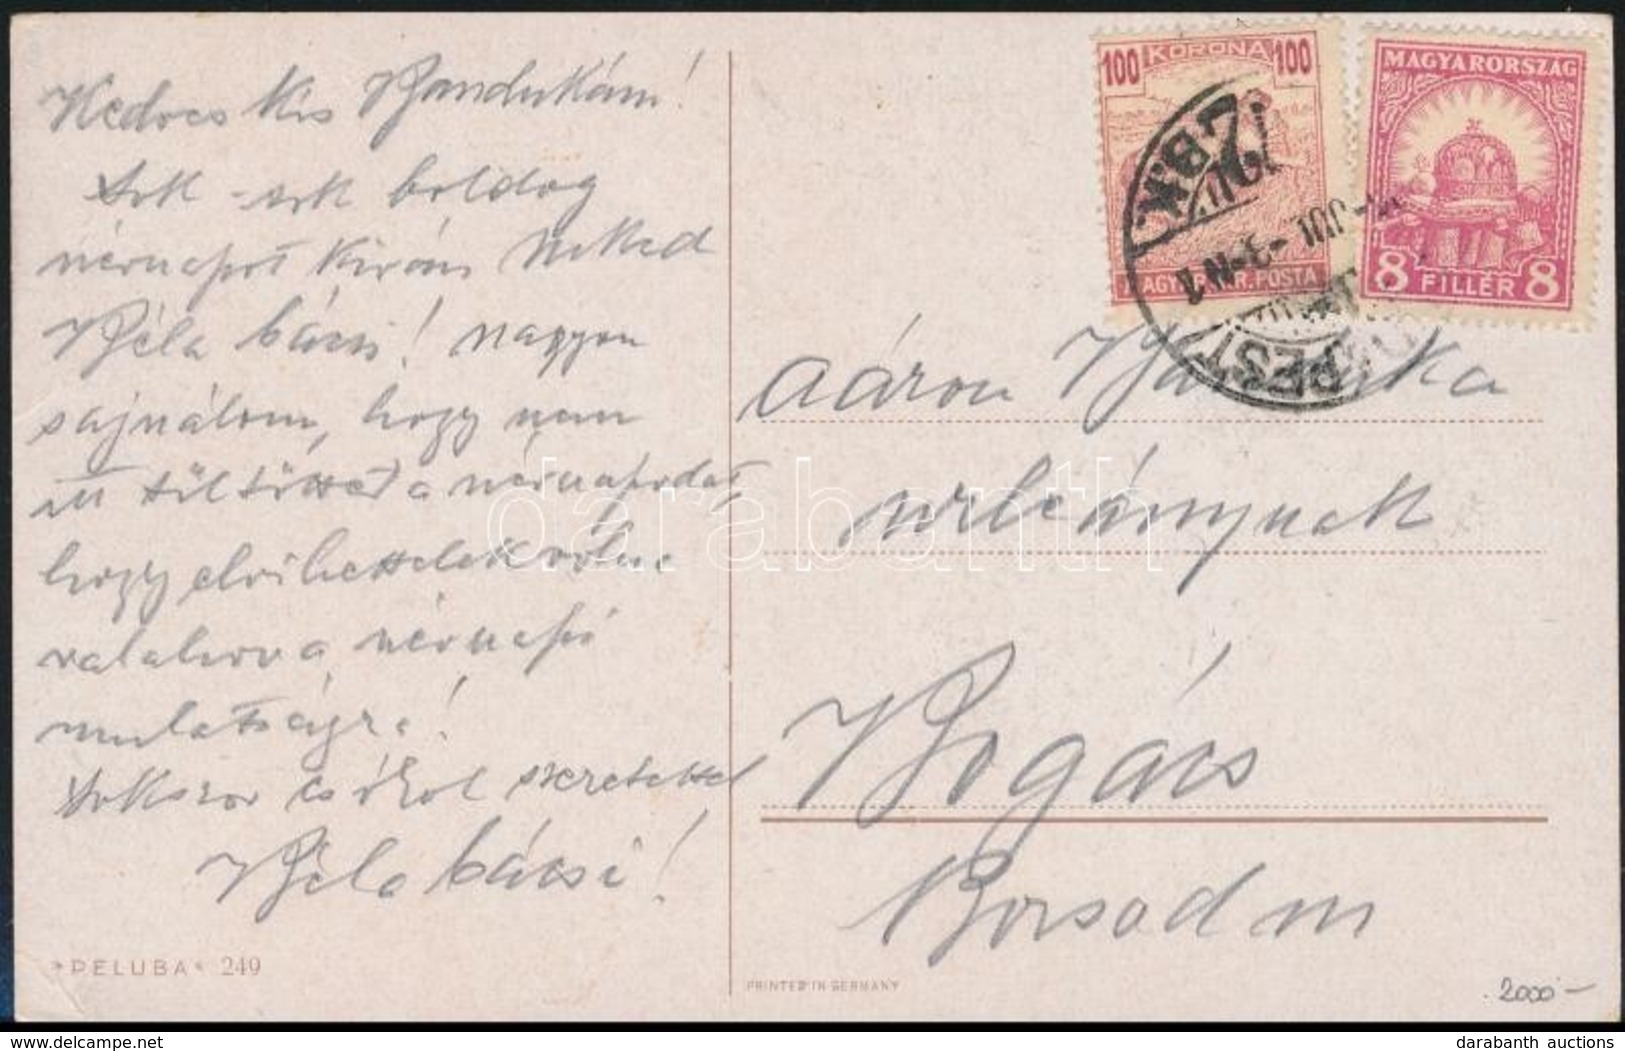 Kedves kis Bandukám!
Sok-sok boldog
névnapot kíván Neked
Béla bácsi! Nagyon
sajnálom, hogy nem
itt töltötted a névnapodat,
hogy elvihettelek volna
valahova névnapi
mulatságra!
Sokszor csókol szeretettel
Béla bácsi!
*PELUBA* 249
PRINTED IN GERMANY
100 KORONA 100
MAGYAR KIR. POSTA
MAGYARORSZÁG
8 FILLÉR 8
BUDAPEST
JUL -3
Áron
úrleánynak
Bogács
Borsod m
2000-
darabanth
delcampe.net
darabanth auctions